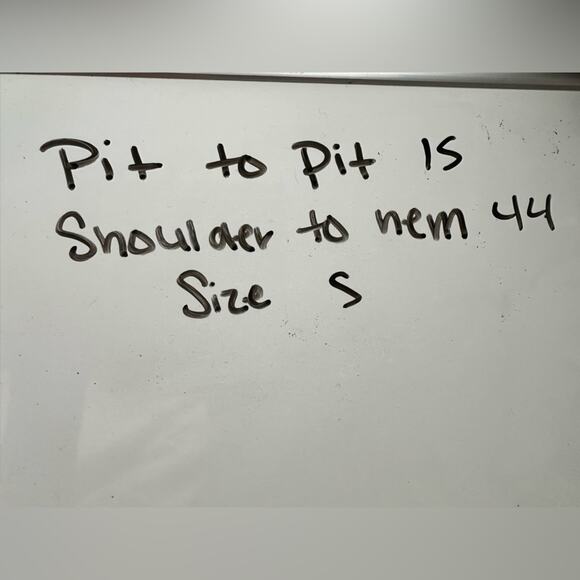 Pit to Pit 15
Shoulder to hem 44
Size S